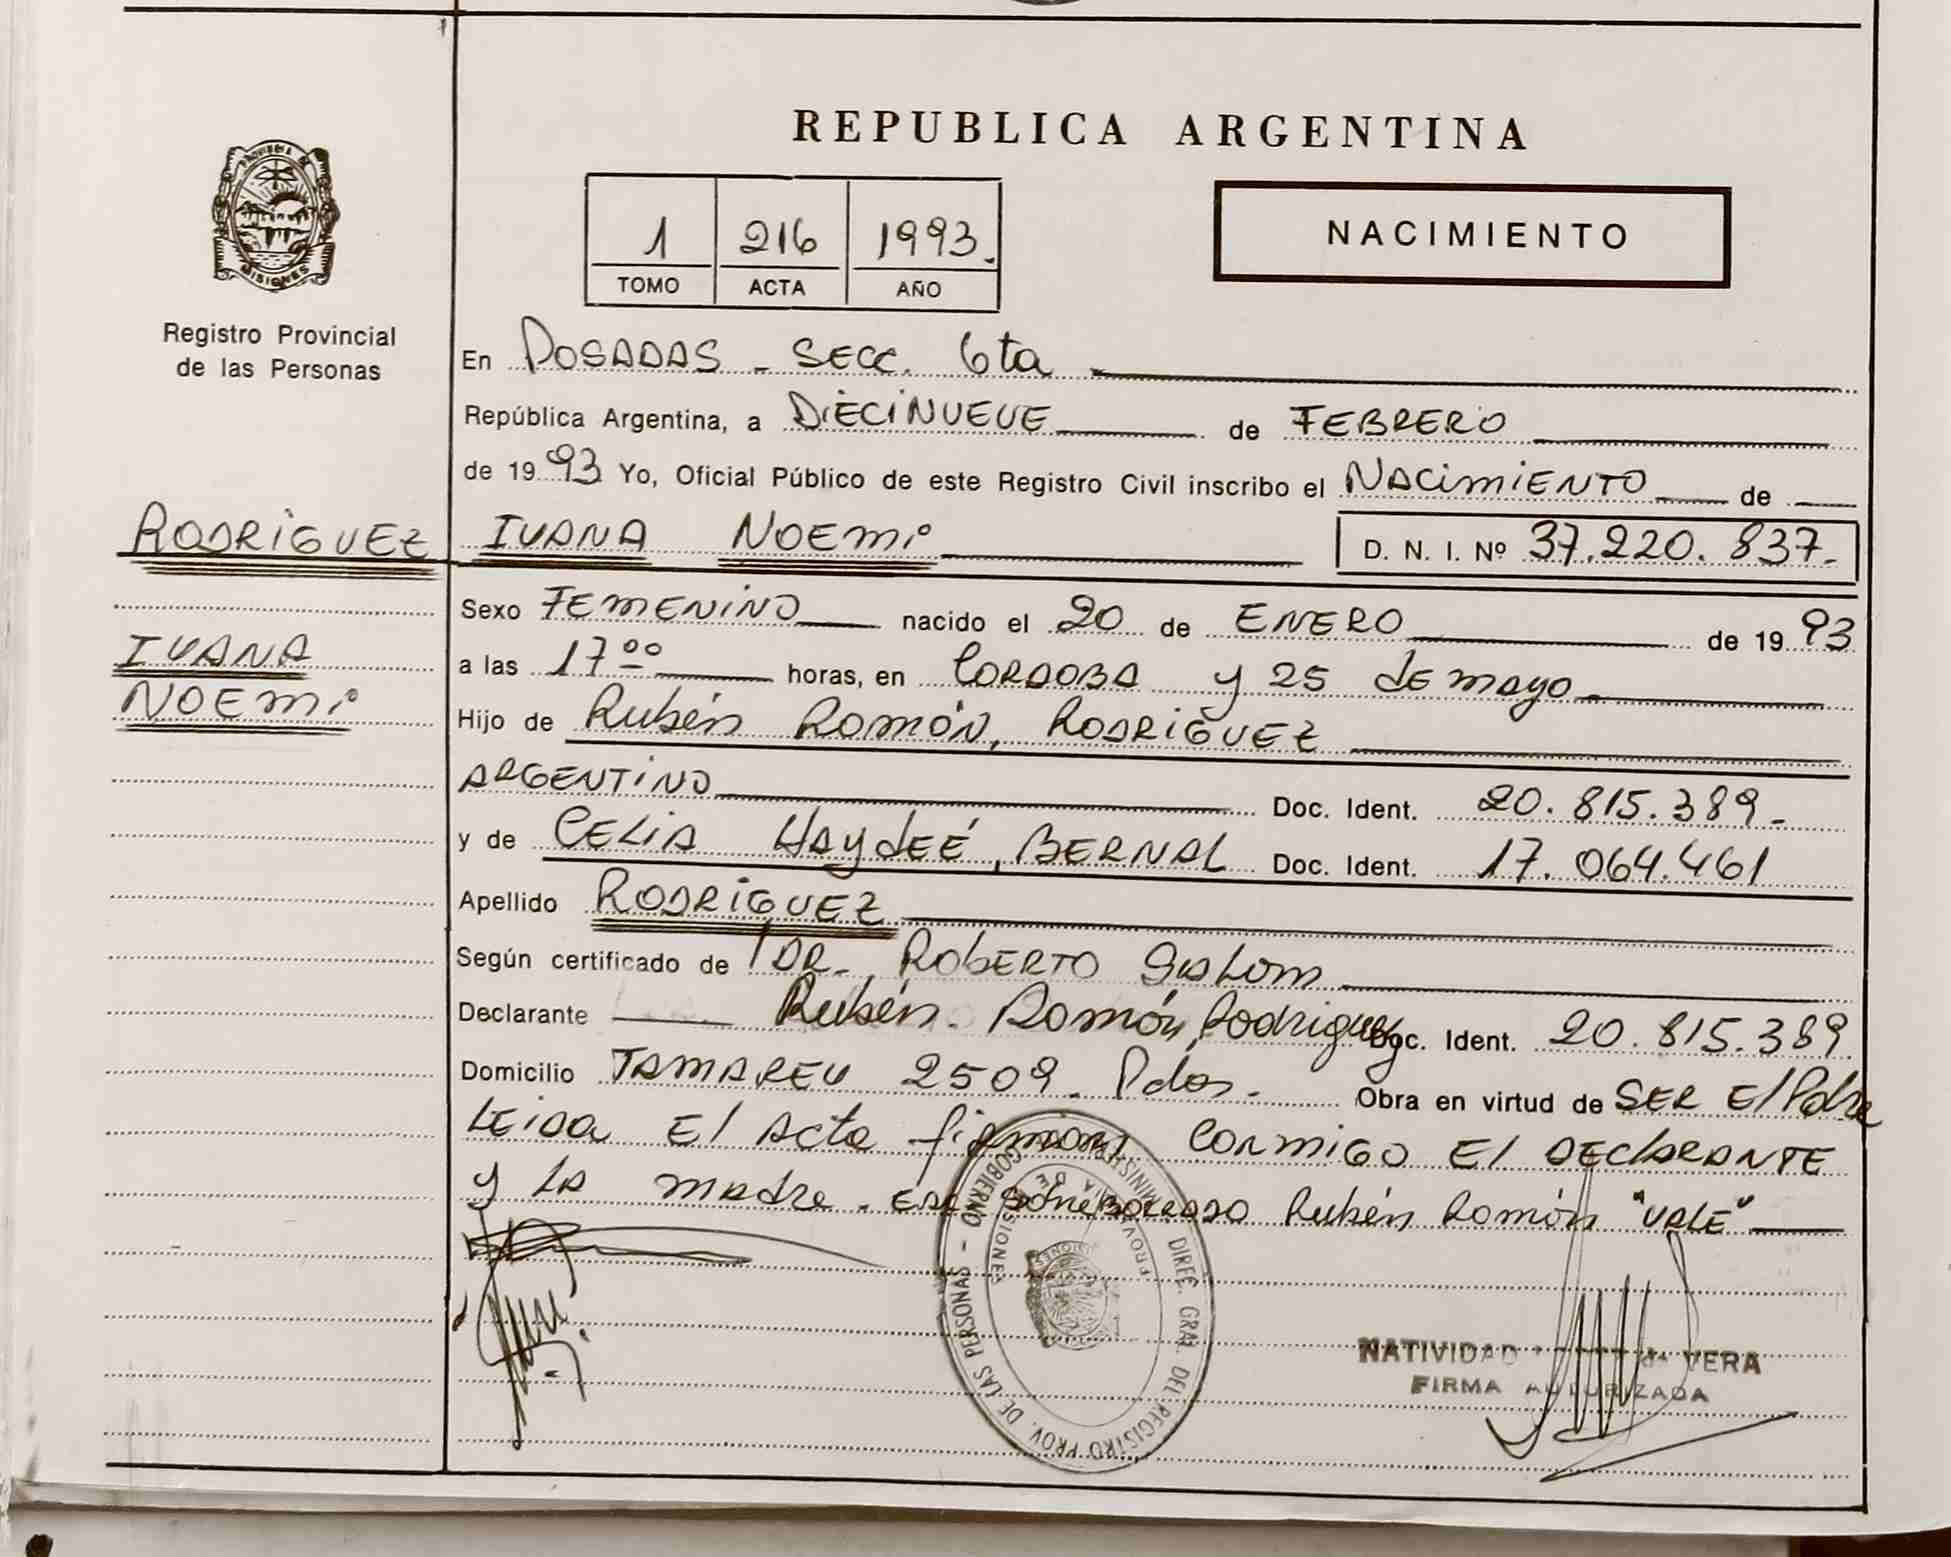 REPUBLICA ARGENTINA
PROVINCIA DE
MISIONES
Registro Provincial
de las Personas
1 216 1993.
TOMO ACTA AÑO
NACIMIENTO
En POSADAS - SECC. 6ta
República Argentina, a DIECINUEVE de FEBRERO
de 1993 Yo, Oficial Público de este Registro Civil inscribo el NACIMIENTO de
RODRIGUEZ IVANA NOEMI D. N. I. Nº 37.220.837.-
IVANA
NOEMI
Sexo FEMENINO nacido el 20 de ENERO de 1993
a las 17 00 horas, en CORDOBA y 25 de mayo
Hijo de Rubén Ramón, RODRIGUEZ
ARGENTINO Doc. Ident. 20.815.389.-
y de CELIA HAYdEÉ, BERNAL Doc. Ident. 17.064.461
Apellido RODRIGUEZ
Según certificado de DR. ROBERTO
Declarante Rubén Ramón, Rodriguez Doc. Ident. 20.815.389
Domicilio TAMAREU 2509 Pdas. Obra en virtud de SER El Padre
LEIDA El Acta firman CONMIGO El DECLARANTE
y LA madre. sobreborrado Rubén Ramón "VALE"
MINISTERIO DE GOBIERNO - DIREC. GRAL. DEL REGISTRO PROV. DE LAS PERSONAS -
PROVINCIA DE MISIONES
NATIVIDAD de VERA
FIRMA AUTORIZADA